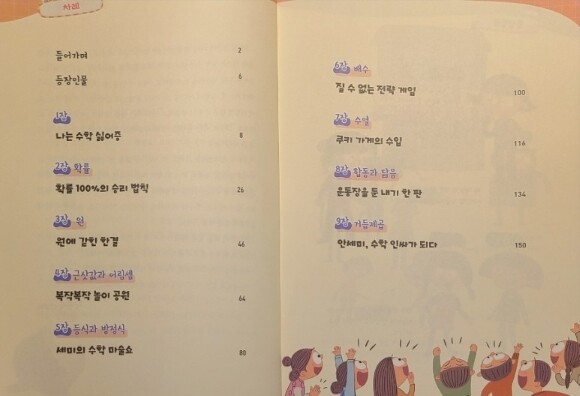 차례
들어가며 2
등장인물 6
1장
나는 수학 싫어증 8
2장 확률
확률 100%의 승리 법칙 26
3장 원
원에 갇힌 한결 46
4장 근삿값과 어림셈
복작복작 놀이 공원 64
5장 등식과 방정식
세미의 수학 마술쇼 80
6장 배수
질 수 없는 전략 게임 100
7장 수열
쿠키 가게의 수임 116
8장 합동과 닮음
운동장을 둔 내기 한 판 134
9장 거듭제곱
안세미, 수학 인싸가 되다 150